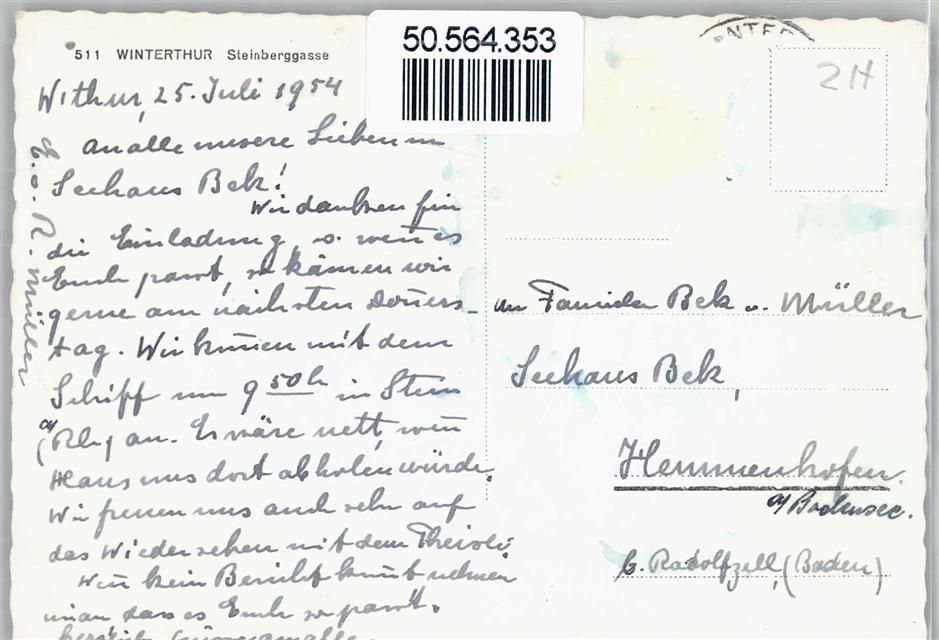 50.564.353
511 WINTERTHUR Steinberggasse
W'thur, 25. Juli 1954
An alle unsere Lieben im
Seehaus Bek!
Wir danken für
die Einladung u. wenn es
Euch passt, so kämen wir
gerne am nächsten Donners-
tag. Wir kommen mit dem
Schiff um 9 50 h in Stein
a/ (Rh) an. Es wäre nett, wenn
Hans uns dort abholen würde.
Wir freuen uns auch sehr auf
das Wiedersehen mit dem
Wenn kein Bericht kommt nehmen
wir an dass es Euch so passt.
herzlich
E. u. R. Müller
2H
an Familie Bek u. Müller
Seehaus Bek,
Hemmenhofen.
a/Bodensee.
b. Radolfzell, (Baden)